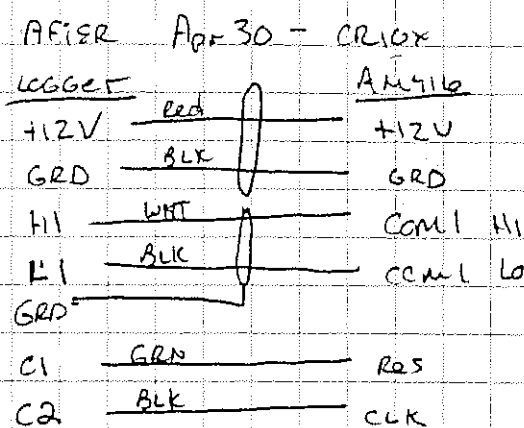 AFTER Apr 30 - CR10X
LOGGER AM416
+12V Red +12V
GRD BLK GRD
H1 WHT COM1 H1
L1 BLK COM1 LO
GRD
C1 GRN Res
C2 BLK CLK